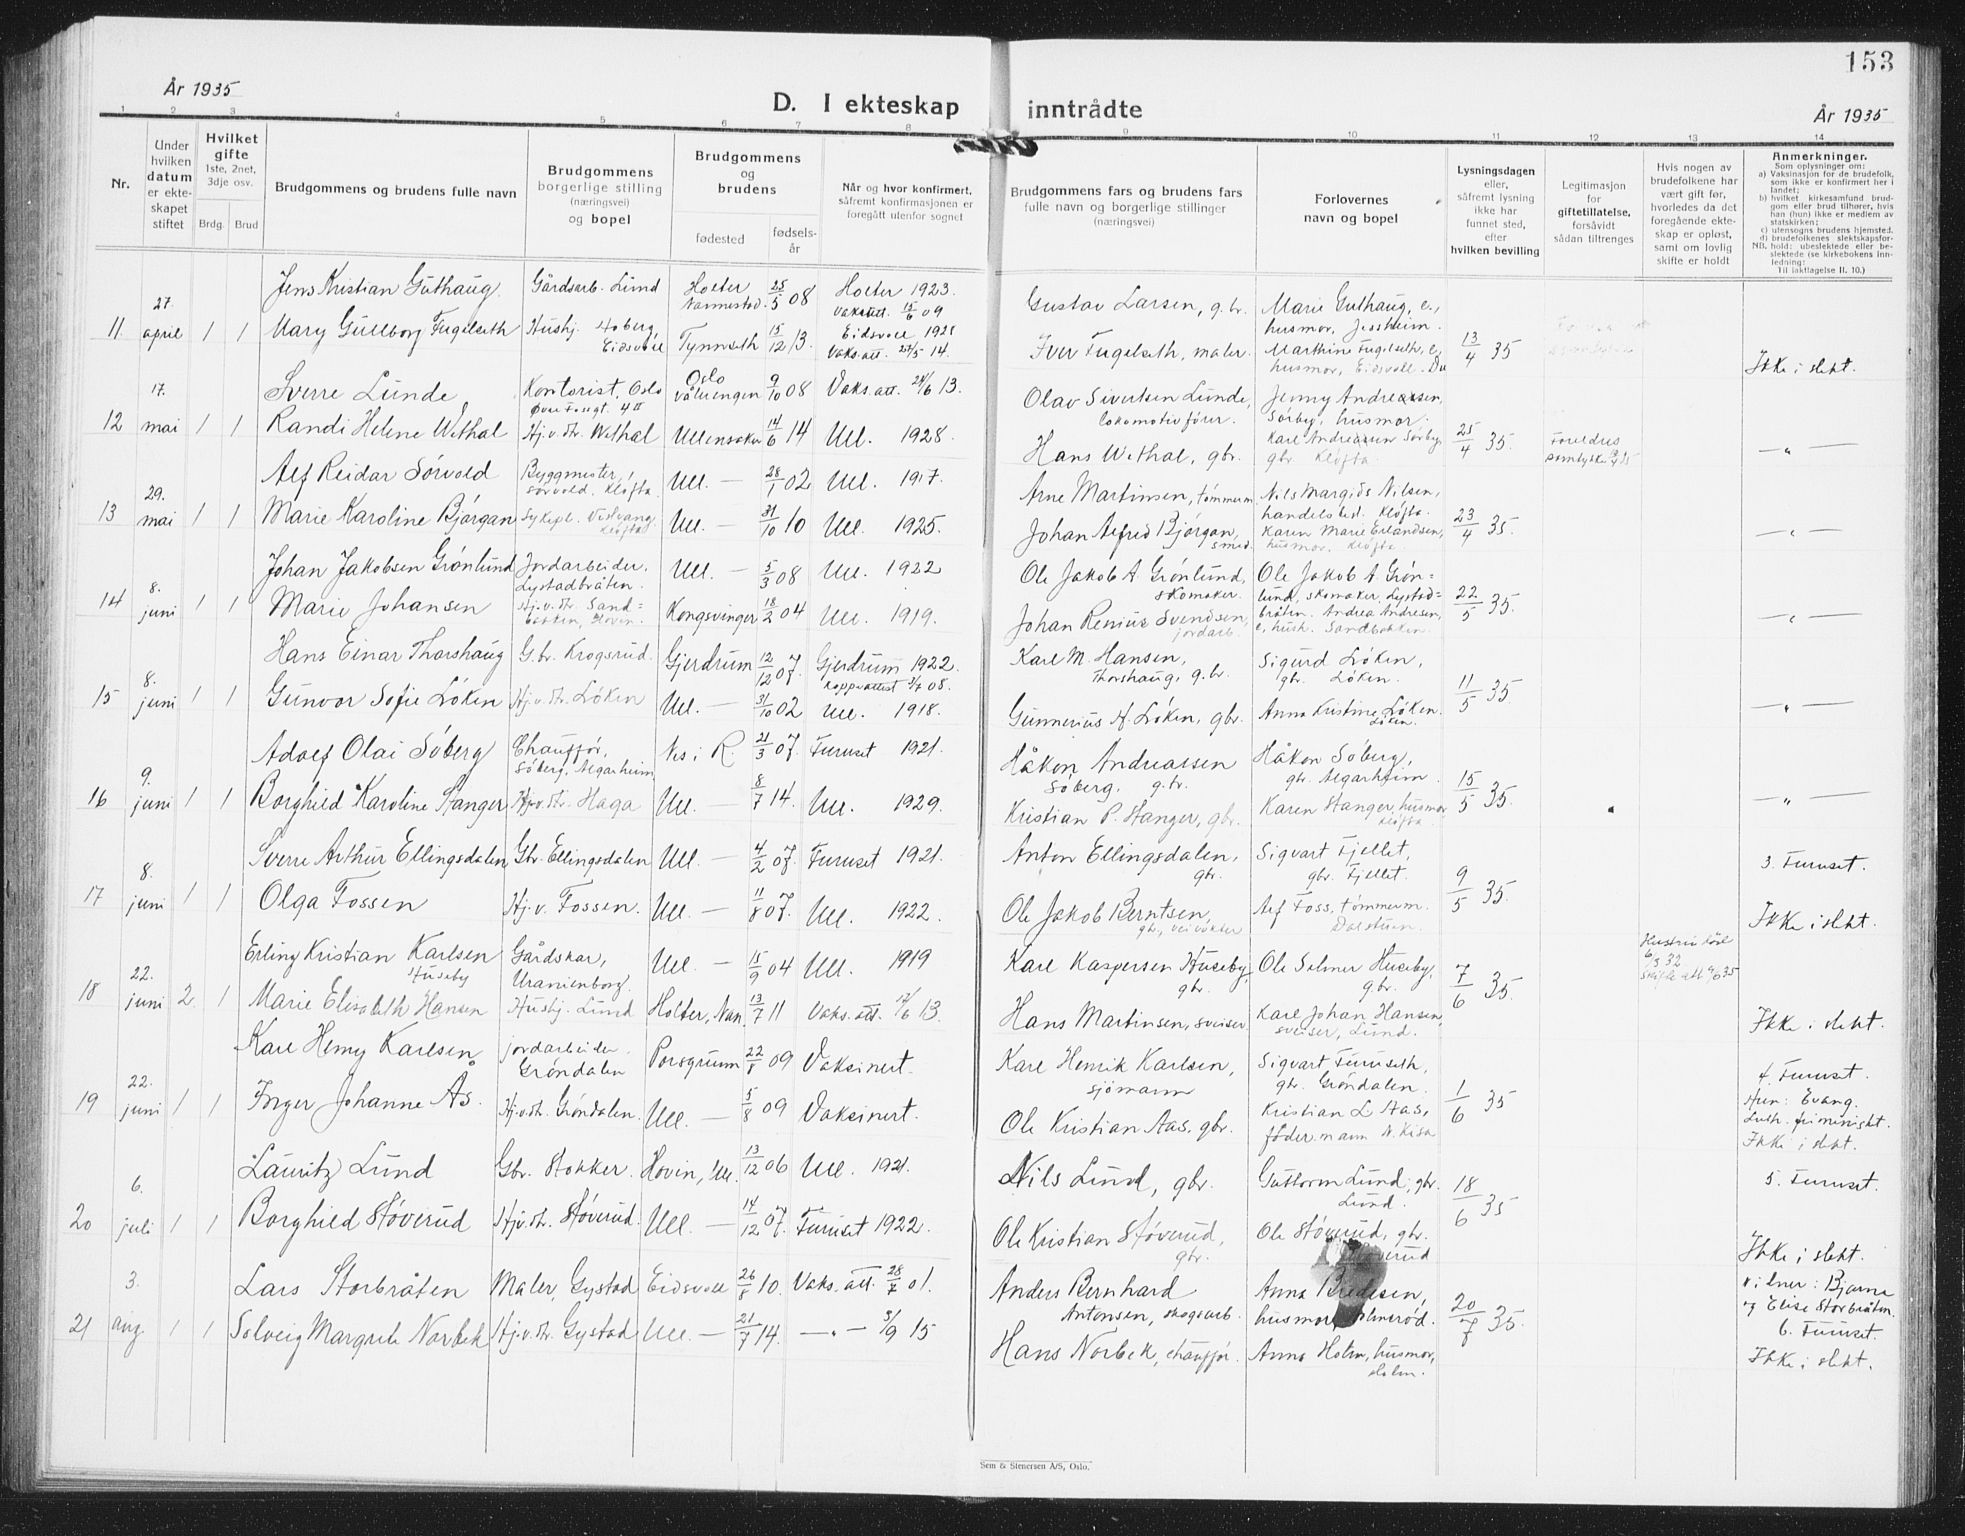 153
År 1935
D. I ekteskap inntrådte
År 1935
1 2 3 4 5 6 7 8 9 10 11 12 13 14
Nr.
Under hvilken datum er ekteskapet stiftet
Hvilket gifte 1ste, 2net, 3dje osv.
Brdg. Brud
Brudgommens og brudens fulle navn
Brudgommens borgerlige stilling (næringsvei) og bopel
Brudgommens og brudens
fødested
fødselsår
Når og hvor konfirmert, såfremt konfirmasjonen er foregått utenfor sognet
Brudgommens fars og brudens fars fulle navn og borgerlige stillinger (næringsvei)
Forlovernes navn og bopel
Lysningsdagen eller, såfremt lysning ikke har funnet sted, efter hvilken bevilling
Legitimasjon for giftetillatelse, forsåvidt sådan tiltrenges
Hvis nogen av brudefolkene har vært gift før, hvorledes da det foregående ekteskap er opløst, samt om lovlig skifte er holdt
Anmerkninger.
Som oplysninger om:
a) Vaksinasjon for de brudefolk, som ikke er konfirmert her i landet;
b) hvilket kirkesamfund brudgom eller brud tilhører, hvis han (hun) ikke er medlem av statskirken;
c) utensogns brudens hjemsted.
d) brudefolkenes slektskapsforhold: ubeslektede eller beslektede (se kirkebokens innledning:
NB. Til iakttagelse II. 10.)
11 27. april 1 1
Jens Kristian Guthaug Gårdsarb. Lund Holter Nannestad 25/5 08 Holter 1923. Vaks.att. 15/6 09 Gustav Larsen, g.br. Marie Guthaug, e., husmor, Jessheim.
Mary Gullborg Fugelseth Hushj. Hoberg, Eidsvoll Tynnseth 15/12 13 Eidsvoll 1928 Vaks.att. 14. Iver Fugelseth, maler. Marthine Fugelseth, e., husmor, Eidsvoll. 13/4 35 Ikke i slekt.
12 17. mai 1 1
Sverre Lunde Kontorist, Oslo Oslo Vålerengen 9/10 08 Vaks.att. 24/6 13. Olav Sivertsen Lunde, lokomotivfører. Jenny Andreassen, Sørby, husmor.
Randi Helene Wethal Hj.v.str. Wethal Ullensaker 14/6 14 Ull. 1928. Hans Wethal, gbr. Karl Andreassen Sørby, gbr. Kløfta. 25/4 35. Foreldres samtykke — „ —
13 29. mai 1 1
Alf Reidar Sørvold Byggmester, Sørvold. Kløfta. Ull. — 28/1 02 Ull. 1917. Arne Martinsen, tømmerm. Nils Margido Nilsen, handelsbest. Kløfta.
Marie Karoline Bjørgan Sykepl. Vestvang, Kløfta Ull. — 31/10 10 Ull. 1925. Johan Alfred Bjørgan, smed. Karen Marie Erlandsen, husmor, Kløfta. 23/4 35. — „ —
14 8. juni 1 1
Johan Jakobsen Grønlund Jordarbeider, Lystadbråten. Ull. — 5/3 08 Ull. 1922 Ole Jakob A. Grønlund, skomaker. Ole Jakob A. Grønlund, skomaker, Lystadbråten.
Marie Johansen Hj.v.str. Sandbakken, Hovin. Kongsvinger 18/2 04 Ull. 1919. Johan Renius Svendsen, jordarb. Andrea Andresen, e, hush. Sandbakken. 22/5 35. — „ —
15 8. juni 1 1
Hans Einar Thorshaug G.br. Krogsrud. Gjerdrum 12/12 07 Gjerdrum 1922 Koppeattest 3/7 08. Karl M. Hansen, Thorshaug, g.br. Sigurd Løken, gbr. Løken.
Gunvor Sofie Løken Hj.v.str. Løken Ull. — 31/10 02 Ull. 1918. Gunnerius H. Løken, gbr. Anna Kristine Løken. Løken. 11/5 35. — „ —
16 9. juni 1 1
Adolf Olai Søberg Chauffør, Søberg, Algarheim Nes i R. 21/3 07. Furuset 1921. Håkon Andreassen Søberg, g.br. Håkon Søberg, gbr. Algarheim.
Borghild Karoline Stanger Hj.v.str. Haga Ull. — 8/7 14. Ull. 1929. Kristian P. Stanger, gbr. Karen Stanger, husmor Kløfta. 15/5 35. — „ —
17 8. juni 1 1
Sverre Arthur Ellingsdalen Gbr. Ellingsdalen Ull. — 4/2 07. Furuset 1921. Anton Ellingsdalen, gbr. Sigvart Fjellet, gbr. Fjellet. 3. Furuset.
Olga Fossen Hj.v. Fossen. Ull. — 11/8 07. Ull. 1922. Ole Jakob Berntsen, gbr., veivokter Alf Foss, tømmerm. Dalstuen. 9/5 35 Ikke i slekt.
18 22. juni 2 1
Erling Kristian Karlsen Huseby Gårdskar, Uranienborg. Ull. — 15/9 04 Ull. 1919 Karl Kaspersen Huseby, gbr. Ole Solmer Huseby, gbr.
Marie Elisabeth Hansen Hushj. Lund Holter, Nan. 13/7 11 Vaks.att. 12/6 13. Hans Martinsen, sveiser Karl Johan Hansen, sveiser, Lund. 7/6 35. Ikke i slekt.
19 22. juni 1 1
Karl Henry Karlsen Jordarbeider. Grøndalen Porsgrunn 22/8 09 Vaksinert. Karl Henrik Karlsen, sjømann Sigvart Furuseth, gbr. Grøndalen. 4. Furuset.
Inger Johanne Ås. Hj.v.str. Grøndalen. Ull. — 5/8 09 Vaksinert. Ole Kristian Aas, gbr. Kristian L. Aas, føder.mann N. Kisa 1/6 35 Hun: Evang. Luth. frimenight. Ikke i slekt.
20 6. juli 1 1
Lauritz Lund Gbr. Stokker. Hovin, Ull. 13/12 06 Ull. 1921. Nils Lund, gbr. Guttorm Lund, gbr. Lund. 5. Furuset.
Borghild Støverud Hj.v.str. Støverud. Ull. — 14/12 07. Furuset 1922. Ole Kristian Støverud, gbr. Ole Støverud, gbr. Støverud 18/6 35 Ikke i slekt.
21 3. aug 1 1
Lars Storbråten Maler, Gystad Eidsvoll 26/8 10. Vaks.att. 28/7 01. Anders Bernhard Antonsen, skogsarb. Anna Bredesen, husmor, Vilner: Bjarne og Elise Storbråten. 6. Furuset.
Solveig Margrete Norbek Hj.v.str. Gystad Ull. — 21/7 14. — „ — 3/9 15 Hans Norbek, chauffør. Anna Holm, husmor, Holm. 20/7 35. Ikke i slekt.
Sem & Stenersen A/S, Oslo.